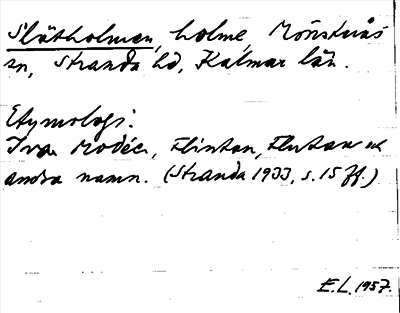 Slätholmen, holme, Mönsterås
sn, Stranda hd, Kalmar län.
Etymologi.
Ivar Modéer, Flintan, Flutan ok
andra namn. (Stranda 1933, s. 15 ff.)
E.L. 1957.